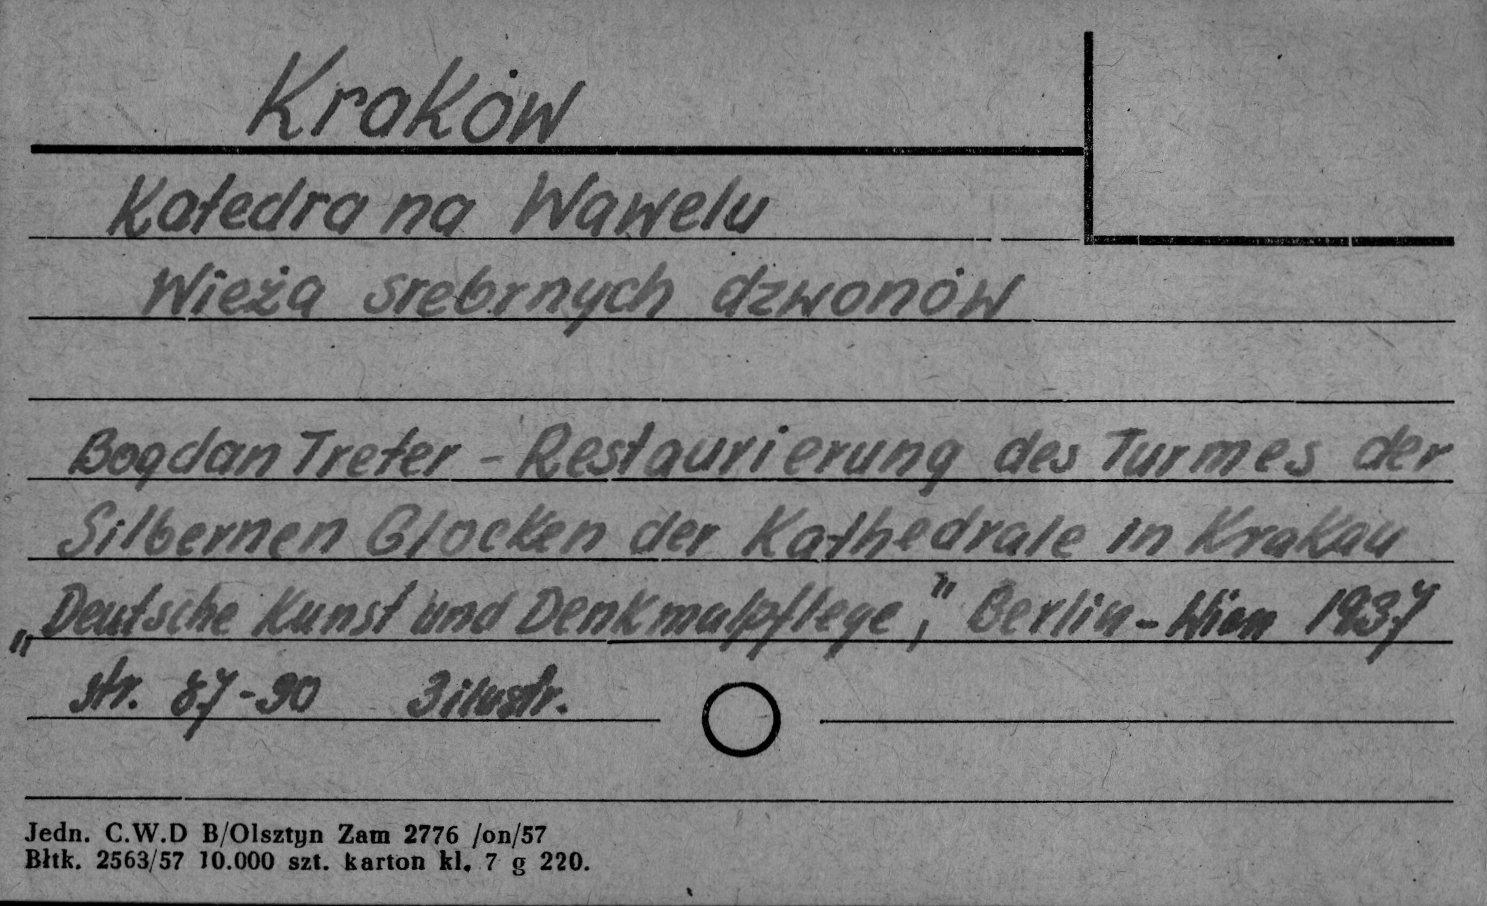 Kraków
Katedra na Wawelu
Wieża srebrnych dzwonów
Bogdan Treter - Restaurierung des Turmes der
Silbernen Glocken der Kathedrale in Krakau
„Deutsche Kunst und Denkmalpflege," Berlin - Wien 1937
str. 87-90 3 ilustr.
Jedn. C.W.D B/Olsztyn Zam 2776 /on/57
Błtk. 2563/57 10.000 szt. karton kl. 7 g 220.